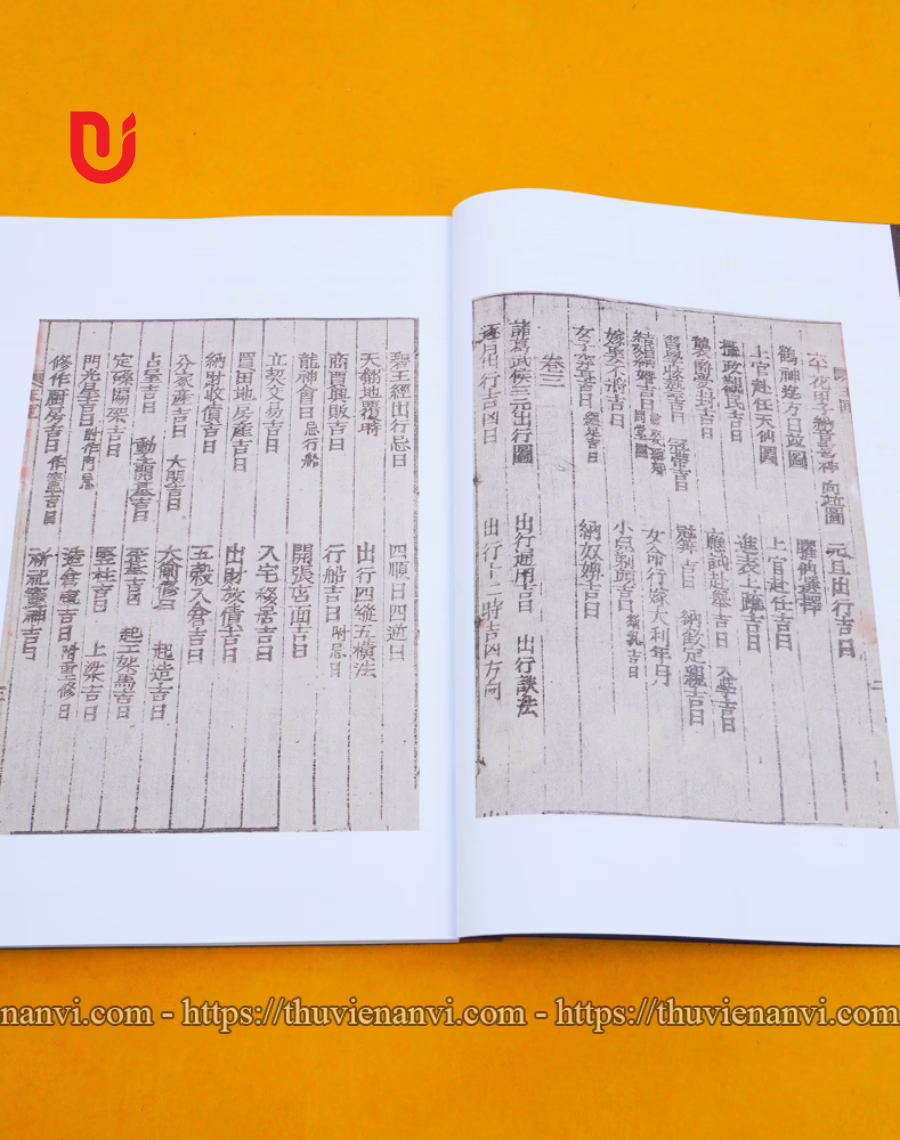 元旦出行吉日
鶴神遊方日並圖
上官赴任天仙圖 上官赴任吉日
親民吉日 進表上疏吉日
襲爵受封吉日 應試赴舉吉日 入學吉日
吉日 冠帶吉日 冠笄吉日 定親吉日
周堂圖 女命行嫁大利年月
嫁娶不將吉日 小兒剃頭吉日 斷乳吉日
女子穿耳吉日 纏足吉日 納奴婢吉日
卷三
諸葛武侯三元出行圖 出行通用吉日 出行訣法
逐月出行吉凶日 出行十二時吉凶方向
經出行忌日 四順日四逆日
天翻地覆時 出行四縱五橫法
商賈興販吉日 行船吉日 附忌日
龍神會日 忌行船 開張店面吉日
立契交易吉日 入宅移居吉日
買田地房產吉日 出財放債吉日
納財收債吉日 五穀入倉吉日
分家產吉日 大開吉日 大偷修日 起造吉日
吉日 動土開基吉日 平基吉日 起工架馬吉日
定磉扇架吉日 竪柱吉日 上梁吉日
門光星吉日 附作門忌 造倉庫吉日 附重修日
修作厨房吉日 作竈吉圖 祈祀竈神吉日
nanvi.com - https://thuvienanvi.com - https://thuvienanvi.com